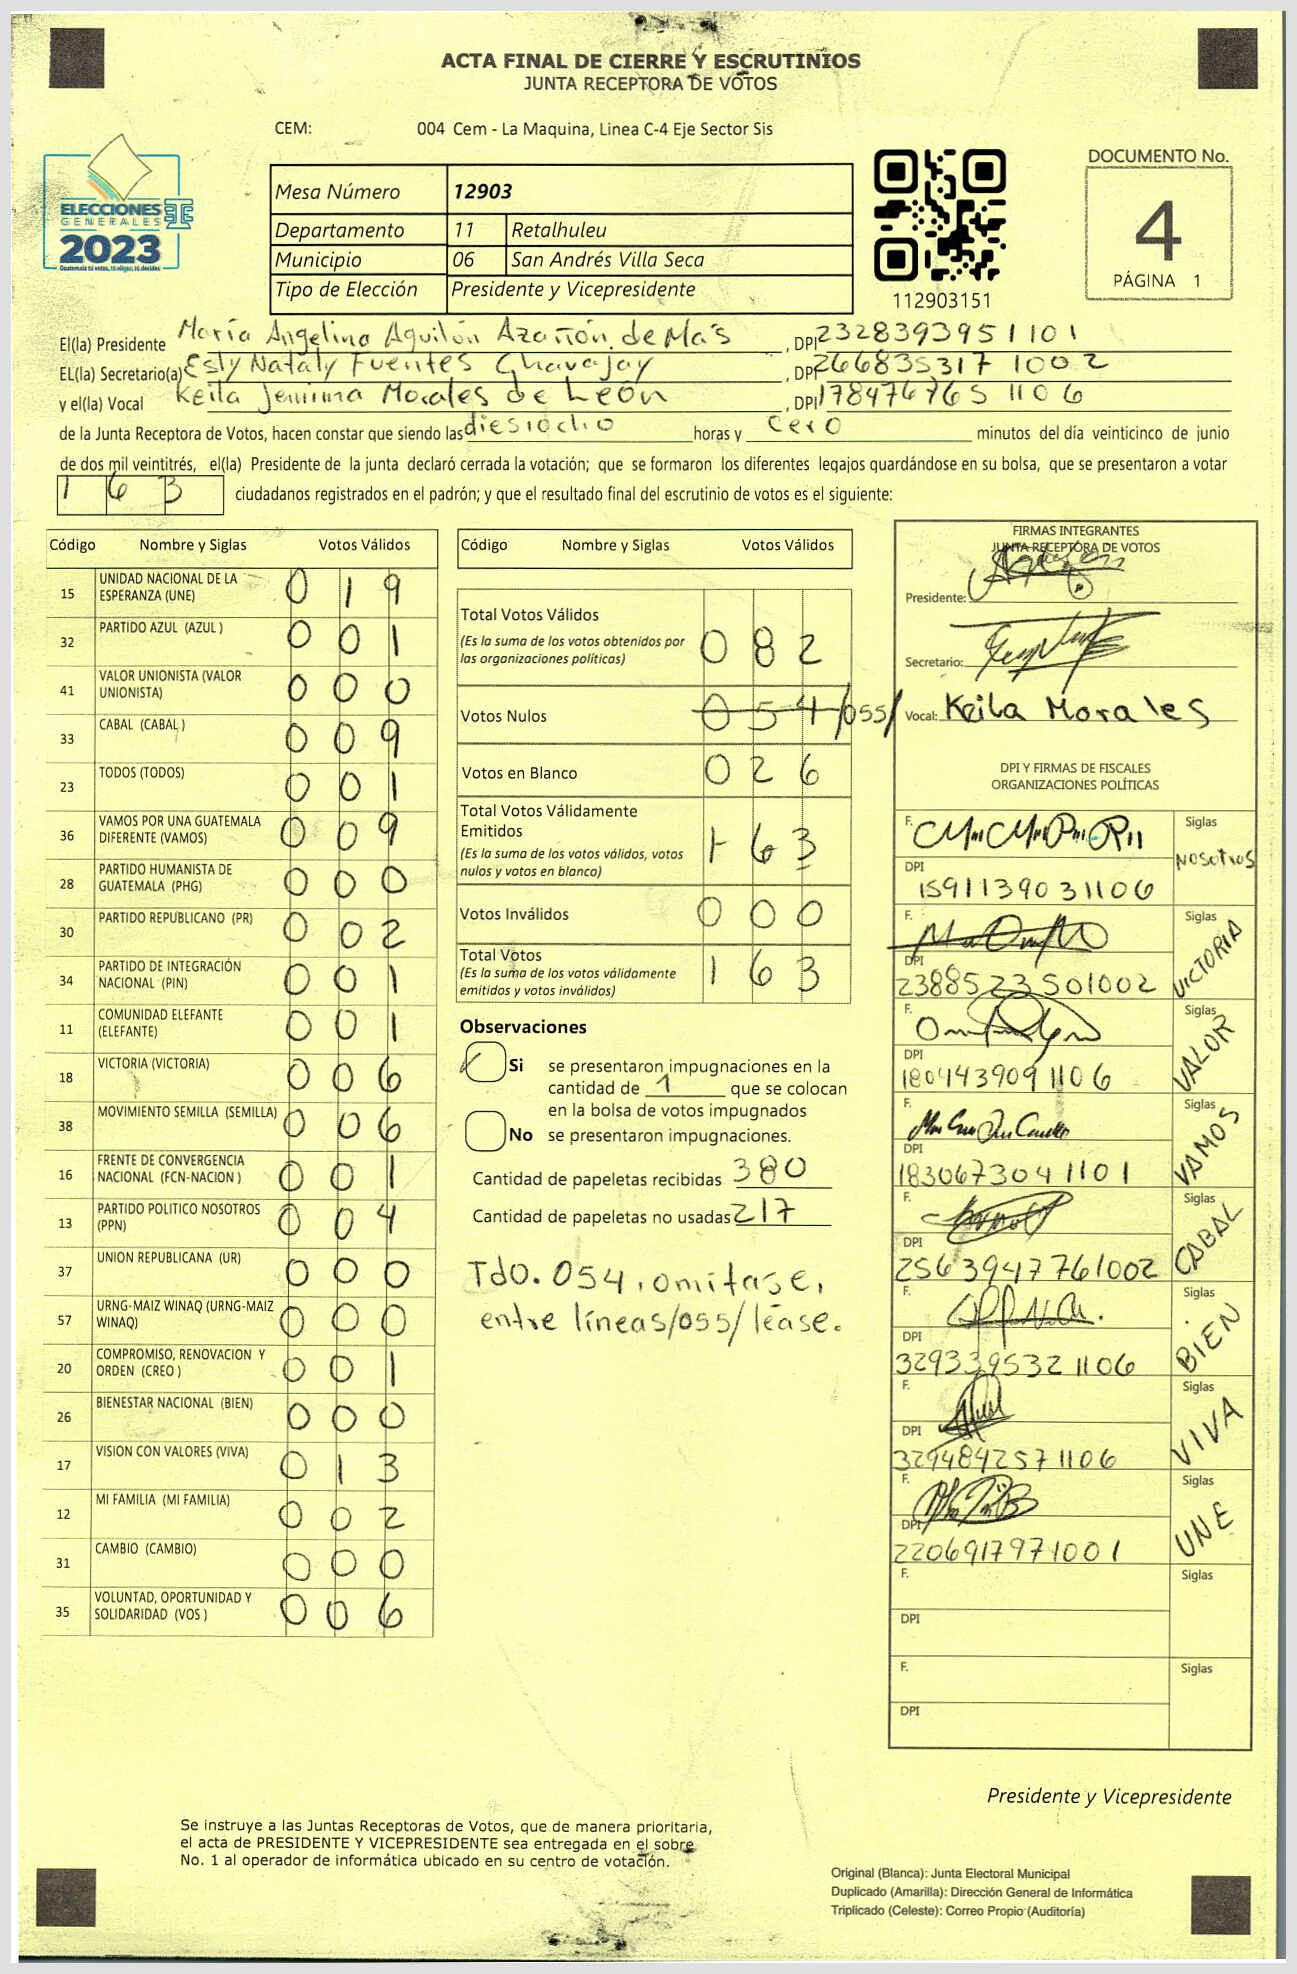 ACTA FINAL DE CIERRE Y ESCRUTINIOS
JUNTA RECEPTORA DE VOTOS
CEM: 004 Cem - La Maquina, Linea C-4 Eje Sector Sis
DOCUMENTO No.
4
PÁGINA 1
ELECCIONES
GENERALES
2023
Guatemala tú votas, tú eliges, tú decides
Mesa Número 12903
Departamento 11 Retalhuleu
Municipio 06 San Andrés Villa Seca
Tipo de Elección Presidente y Vicepresidente
112903151
El(la) Presidente María Angelina Aguilón Azañón de Más, DPI 2328393951101
EL(la) Secretario(a) Esly Nataly Fuentes Chavajay, DPI 2668353171002
y el(la) Vocal Keila Jemima Morales de León, DPI 1784767651106
de la Junta Receptora de Votos, hacen constar que siendo las diesiocho horas y cero minutos del día veinticinco de junio
de dos mil veintitrés, el(la) Presidente de la junta declaró cerrada la votación; que se formaron los diferentes legajos guardándose en su bolsa, que se presentaron a votar
163 ciudadanos registrados en el padrón; y que el resultado final del escrutinio de votos es el siguiente:
Código Nombre y Siglas Votos Válidos
15 UNIDAD NACIONAL DE LA ESPERANZA (UNE) 019
32 PARTIDO AZUL (AZUL ) 001
41 VALOR UNIONISTA (VALOR UNIONISTA) 000
33 CABAL (CABAL ) 009
23 TODOS (TODOS) 001
36 VAMOS POR UNA GUATEMALA DIFERENTE (VAMOS) 009
28 PARTIDO HUMANISTA DE GUATEMALA (PHG) 000
30 PARTIDO REPUBLICANO (PR) 002
34 PARTIDO DE INTEGRACIÓN NACIONAL (PIN) 001
11 COMUNIDAD ELEFANTE (ELEFANTE) 001
18 VICTORIA (VICTORIA) 006
38 MOVIMIENTO SEMILLA (SEMILLA) 006
16 FRENTE DE CONVERGENCIA NACIONAL (FCN-NACION ) 001
13 PARTIDO POLITICO NOSOTROS (PPN) 004
37 UNION REPUBLICANA (UR) 000
57 URNG-MAIZ WINAQ (URNG-MAIZ WINAQ) 000
20 COMPROMISO, RENOVACION Y ORDEN (CREO ) 001
26 BIENESTAR NACIONAL (BIEN) 000
17 VISION CON VALORES (VIVA) 013
12 MI FAMILIA (MI FAMILIA) 002
31 CAMBIO (CAMBIO) 000
35 VOLUNTAD, OPORTUNIDAD Y SOLIDARIDAD (VOS ) 006
Código Nombre y Siglas Votos Válidos
Total Votos Válidos
(Es la suma de los votos obtenidos por
las organizaciones políticas) 082
Votos Nulos 054 /055/
Votos en Blanco 026
Total Votos Válidamente
Emitidos
(Es la suma de los votos válidos, votos
nulos y votos en blanco) 163
Votos Inválidos 000
Total Votos
(Es la suma de los votos válidamente
emitidos y votos inválidos) 163
Observaciones
Si se presentaron impugnaciones en la
cantidad de 1 que se colocan
en la bolsa de votos impugnados
No se presentaron impugnaciones.
Cantidad de papeletas recibidas 380
Cantidad de papeletas no usadas 217
Tdo. 054, omitase,
entre líneas/055/léase.
FIRMAS INTEGRANTES
JUNTA RECEPTORA DE VOTOS
Presidente:
Secretario:
Vocal: Keila Morales
DPI Y FIRMAS DE FISCALES
ORGANIZACIONES POLÍTICAS
F. Siglas NOSOTROS
DPI 1591139031106
F. Siglas VICTORIA
DPI 2388523501002
F. Siglas VALOR
DPI 1804439091106
F. Siglas VAMOS
DPI 1830673041101
F. Siglas CABAL
DPI 2563947761002
F. Siglas BIEN
DPI 3293395321106
F. Siglas VIVA
DPI 3294842571106
F. Siglas UNE
DPI 2206917971001
F. Siglas
DPI
F. Siglas
DPI
Presidente y Vicepresidente
Se instruye a las Juntas Receptoras de Votos, que de manera prioritaria,
el acta de PRESIDENTE Y VICEPRESIDENTE sea entregada en el sobre
No. 1 al operador de informática ubicado en su centro de votación.
Original (Blanca): Junta Electoral Municipal
Duplicado (Amarilla): Dirección General de Informática
Triplicado (Celeste): Correo Propio (Auditoría)